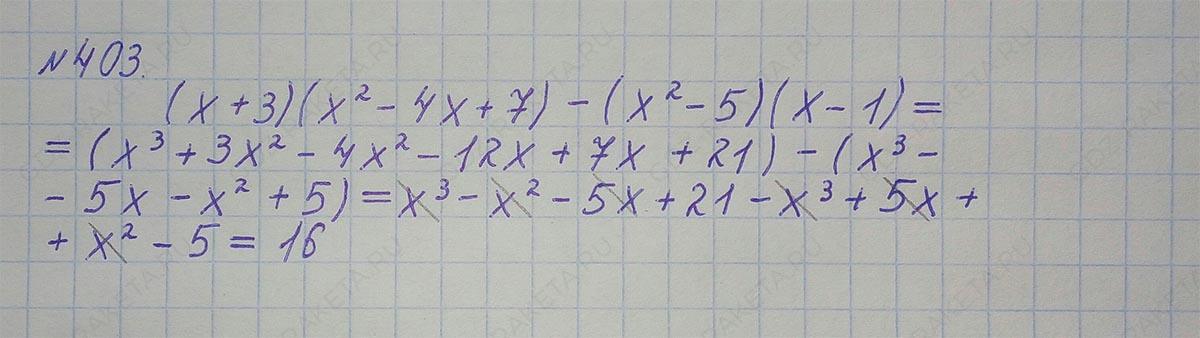 №403.
(x + 3)(x² - 4x + 7) - (x² - 5)(x - 1) =
= (x³ + 3x² - 4x² - 12x + 7x + 21) - (x³ -
- 5x - x² + 5) = x³ - x² - 5x + 21 - x³ + 5x +
+ x² - 5 = 16